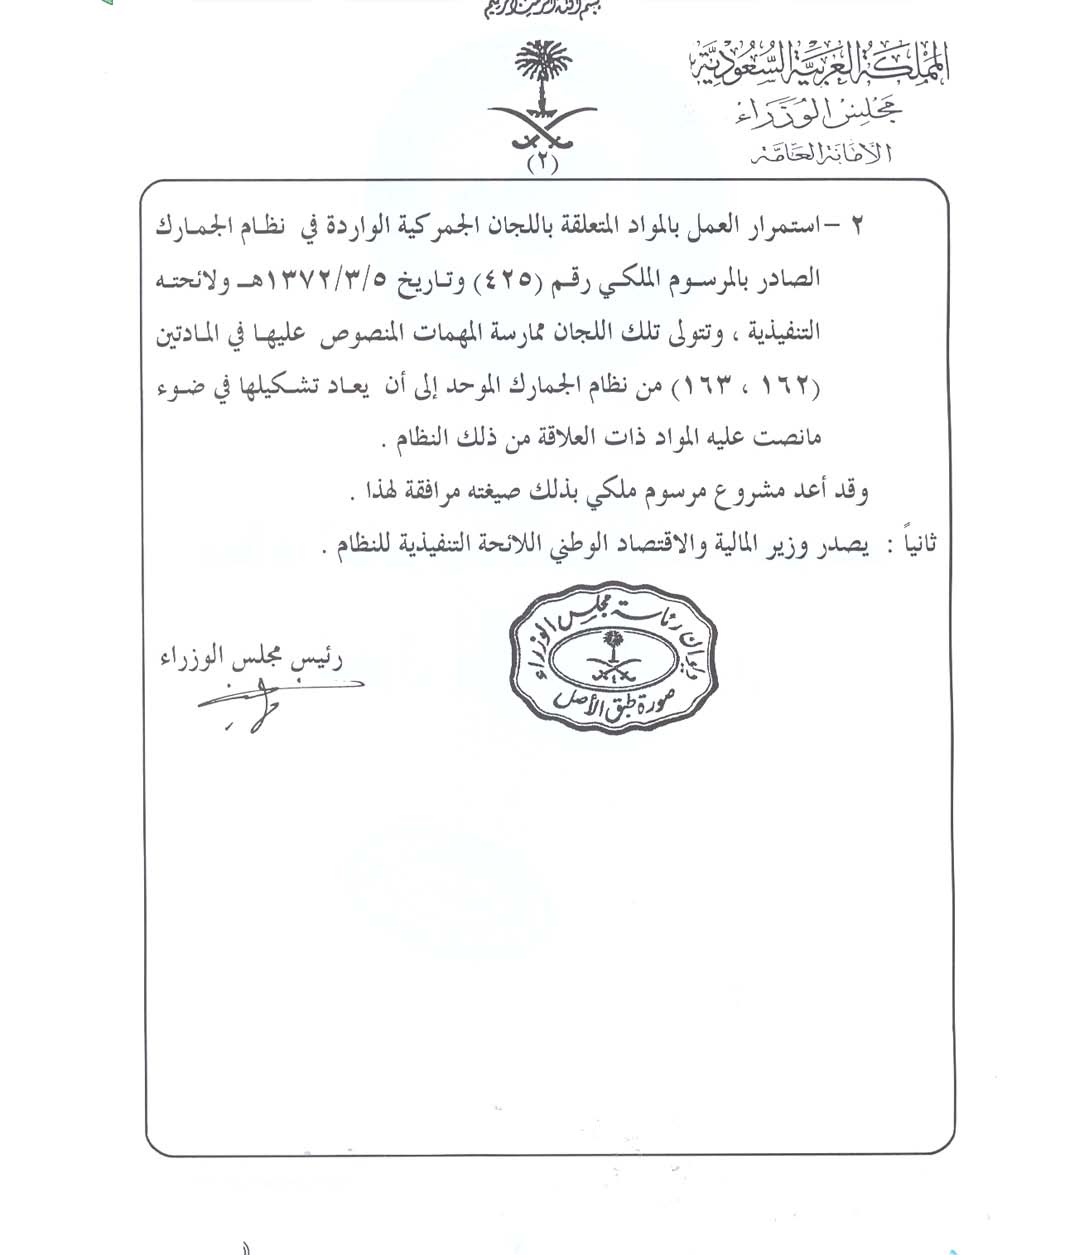 بسم الله الرحمن الرحيم
المملكة العربية السعودية
مجلس الوزراء
الأمانة العامة
(٢)
٢ – استمرار العمل بالمواد المتعلقة باللجان الجمركية الواردة في نظام الجمارك
الصادر بالمرسوم الملكي رقم (٤٢٥) وتاريخ ١٣٧٢/٣/٥هـ ولائحته
التنفيذية ، وتتولى تلك اللجان ممارسة المهمات المنصوص عليها في المادتين
(١٦٢ ، ١٦٣) من نظام الجمارك الموحد إلى أن يعاد تشكيلها في ضوء
مانصت عليه المواد ذات العلاقة من ذلك النظام .
وقد أعد مشروع مرسوم ملكي بذلك صيغته مرافقة لهذا .
ثانياً : يصدر وزير المالية والاقتصاد الوطني اللائحة التنفيذية للنظام .
ديوان رئاسة مجلس الوزراء
صورة طبق الأصل
رئيس مجلس الوزراء